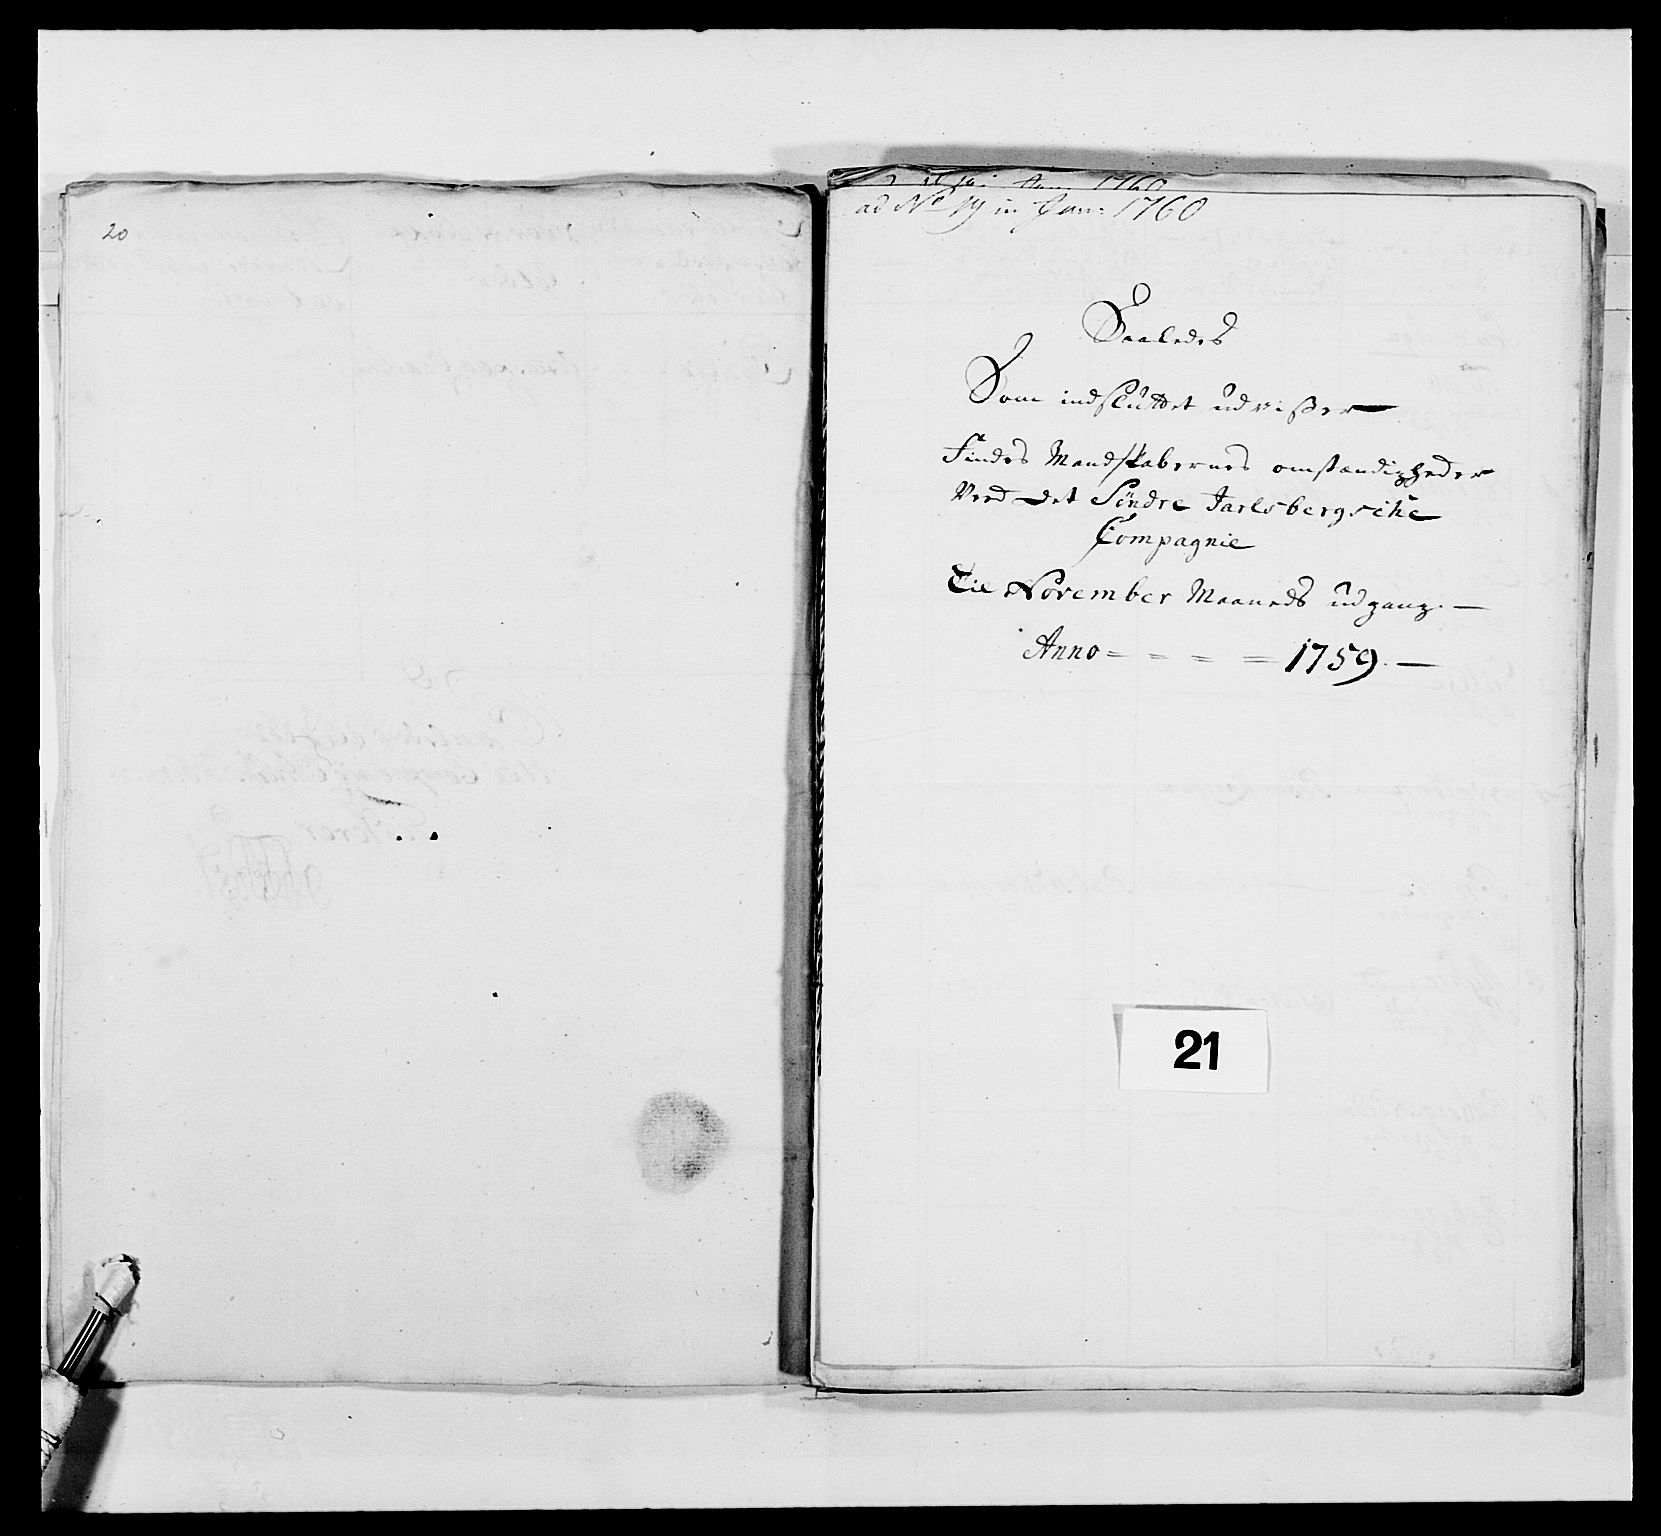 20
ad No 19 in Janr: 1760
Saaledes
Som indsluttet udvißer
Findes Mandskabernes omstændigheder
Veed det Söndre Jarlsbergsche
Compagnie
Til November Maaneds udgang. —
Anno = = = = = 1759. —
21